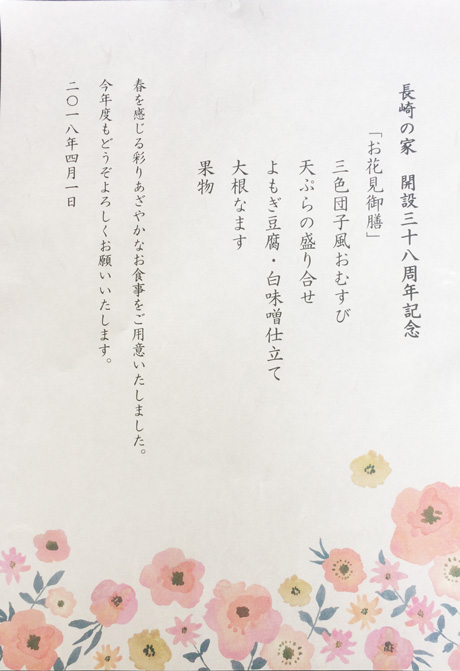 長崎の家　開設三十八周年記念
「お花見御膳」
三色団子風おむすび
天ぷらの盛り合せ
よもぎ豆腐・白味噌仕立て
大根なます
果物
春を感じる彩りあざやかなお食事をご用意いたしました。
今年度もどうぞよろしくお願いいたします。
二〇一八年四月一日